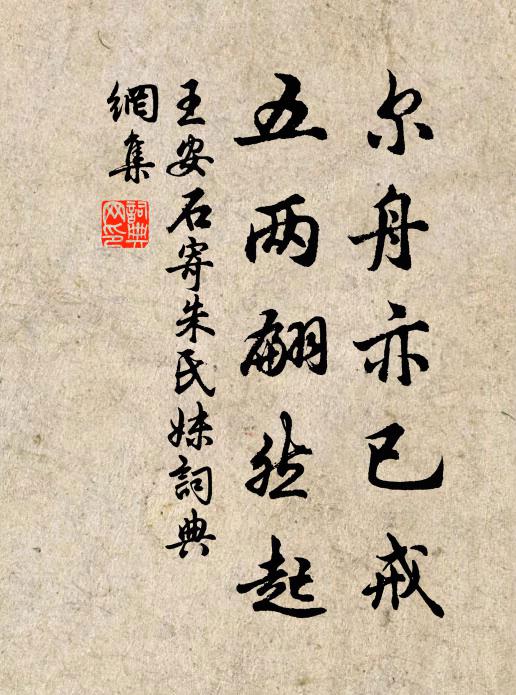 尔舟亦已戒
五两翩然起
王安石寄朱氏妹詞典
網集
詞典
网印